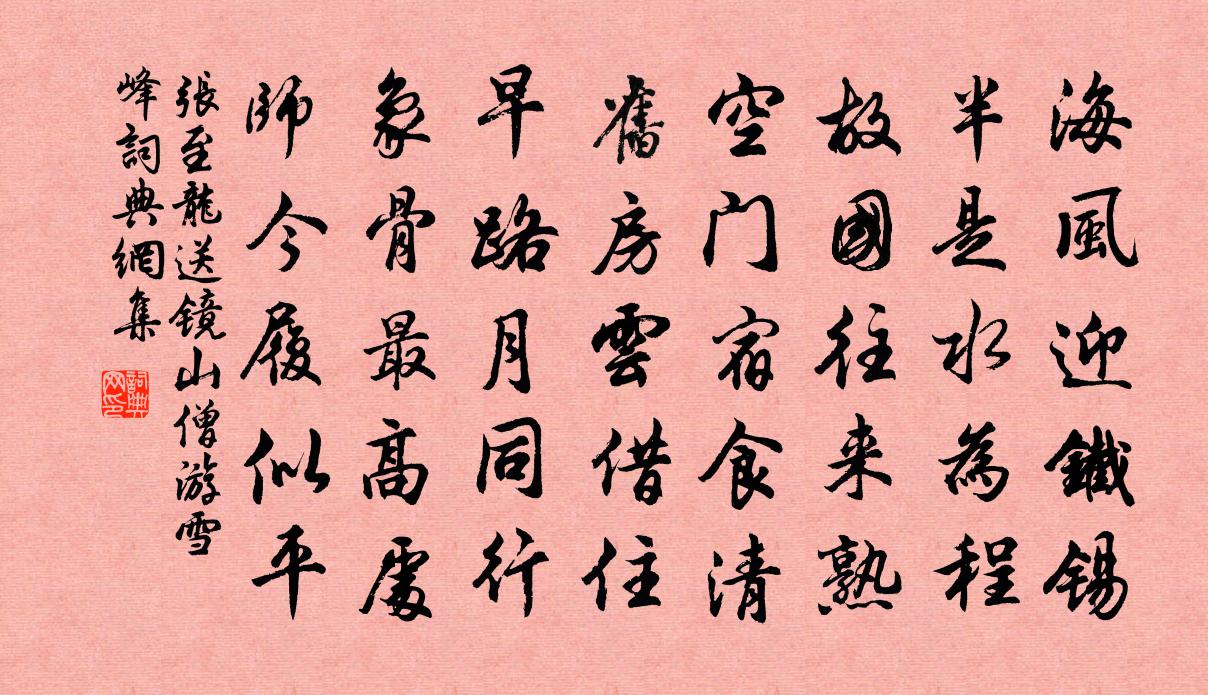 海風迎鐵錫
半是水為程
故國往来熟
空门宿食清
舊房雲借住
早路月同行
象骨最高處
師今履似平
張至龍送鏡山僧游雪
峰詞典網集
詞典
网印